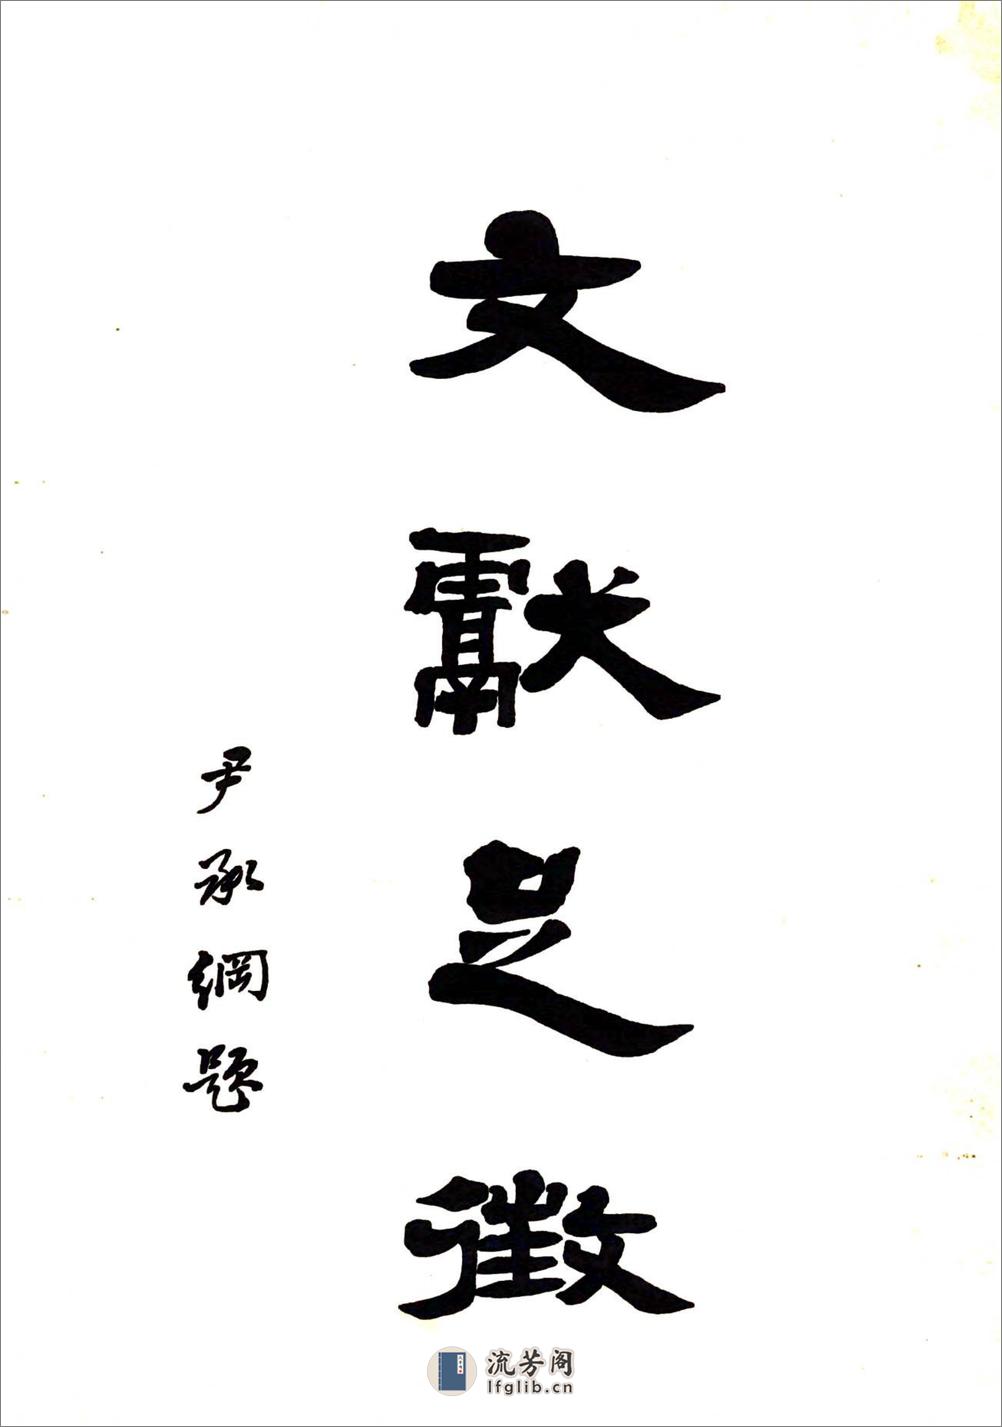 文獻足徵
尹承綱題
流芳阁
lfglib.cn